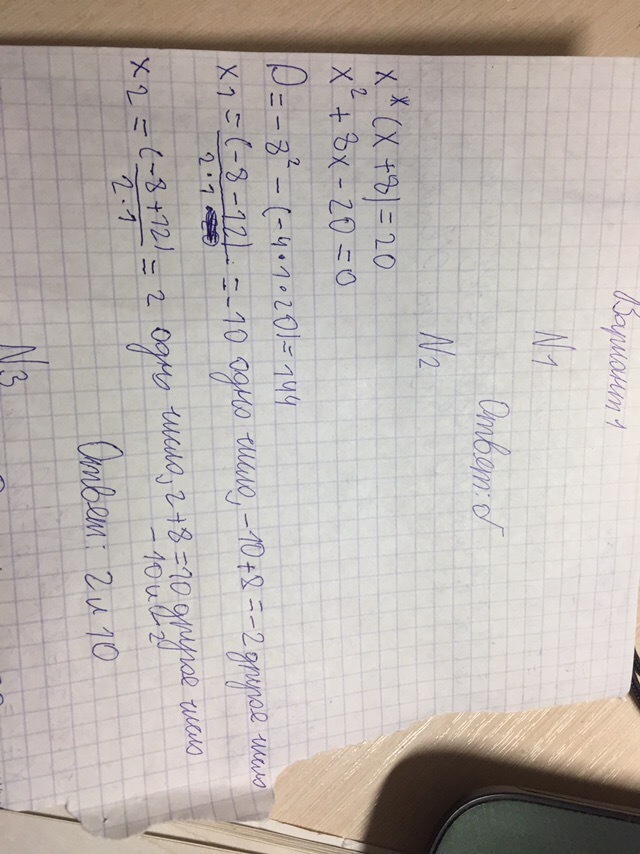 Вариант 1
N1
Ответ: б
N2
x*(x+8)=20
x² + 8x - 20 = 0
D = -8² - (-4·1·20) = 144
x1 = (-8-12) / 2·1 = -10 одно число, -10+8 = -2 другое число
x2 = (-8+12) / 2·1 = 2 одно число, 2+8=10 другое число
-10 и -2
Ответ: 2 и 10
N3